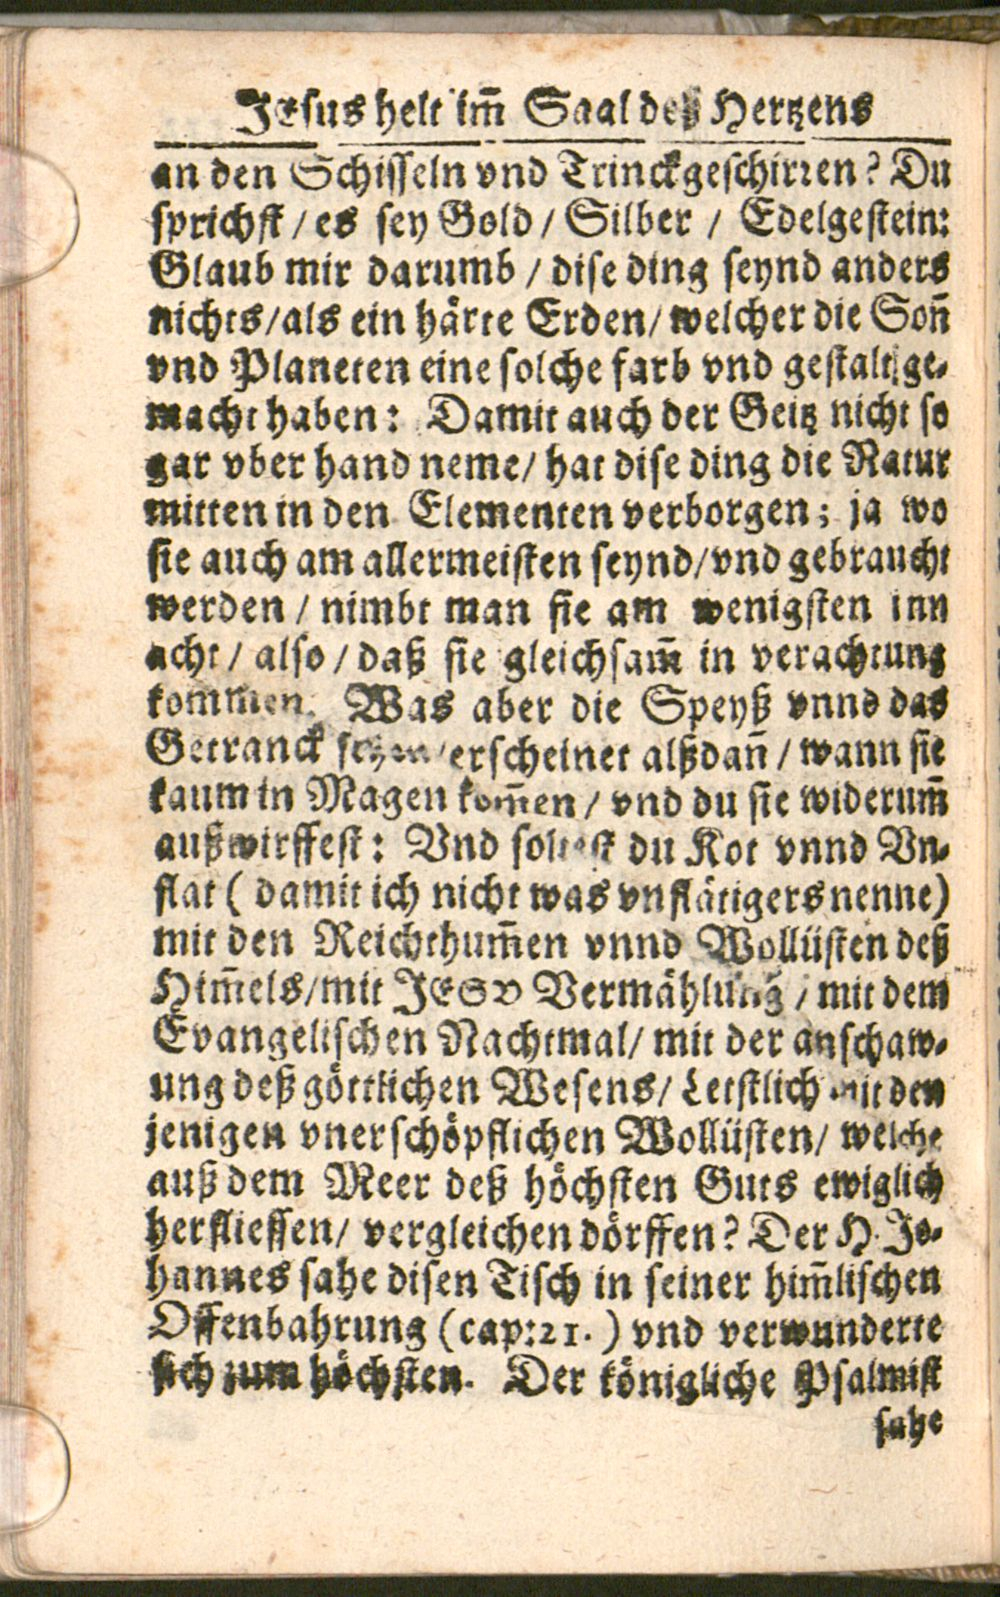 JEsus helt im̃ Saal deß Hertzens
an den Schisseln vnd Trinckgeschirren? Du
sprichst / es sey Gold / Silber / Edelgestein:
Glaub mir darumb / dise ding seynd anders
nichts / als ein härte Erden / welcher die Soñ
vnd Planeten eine solche farb vnd gestalt ge-
macht haben: Damit auch der Geitz nicht so
gar vber hand neme / hat dise ding die Natur
mitten in den Elementen verborgen; ja wo
sie auch am allermeisten seynd / vnd gebraucht
werden / nimbt man sie am wenigsten inn
acht / also / daß sie gleichsam̃ in verachtung
kommen. Was aber die Speyß vnnd das
Getranck seyen / erscheinet alßdañ / wann sie
kaum in Magen kom̃en / vnd du sie widerum̃
außwirffest: Vnd soltest du Kot vnnd Vn-
flat ( damit ich nicht was vnflätigers nenne)
mit den Reichthum̃en vnnd Wollüsten deß
Him̃els / mit JESV Vermählung / mit dem
Evangelischen Nachtmal / mit der anschaw-
ung deß göttlichen Wesens / Letstlich mit den
jenigen vnerschöpflichen Wollüsten / welche
auß dem Meer deß höchsten Guts ewiglich
herfliessen / vergleichen dörffen? Der H. Jo-
hannes sahe disen Tisch in seiner him̃lischen
Offenbahrung (cap: 21. ) vnd verwunderte
sich zum höchsten. Der königliche Psalmist
sahe